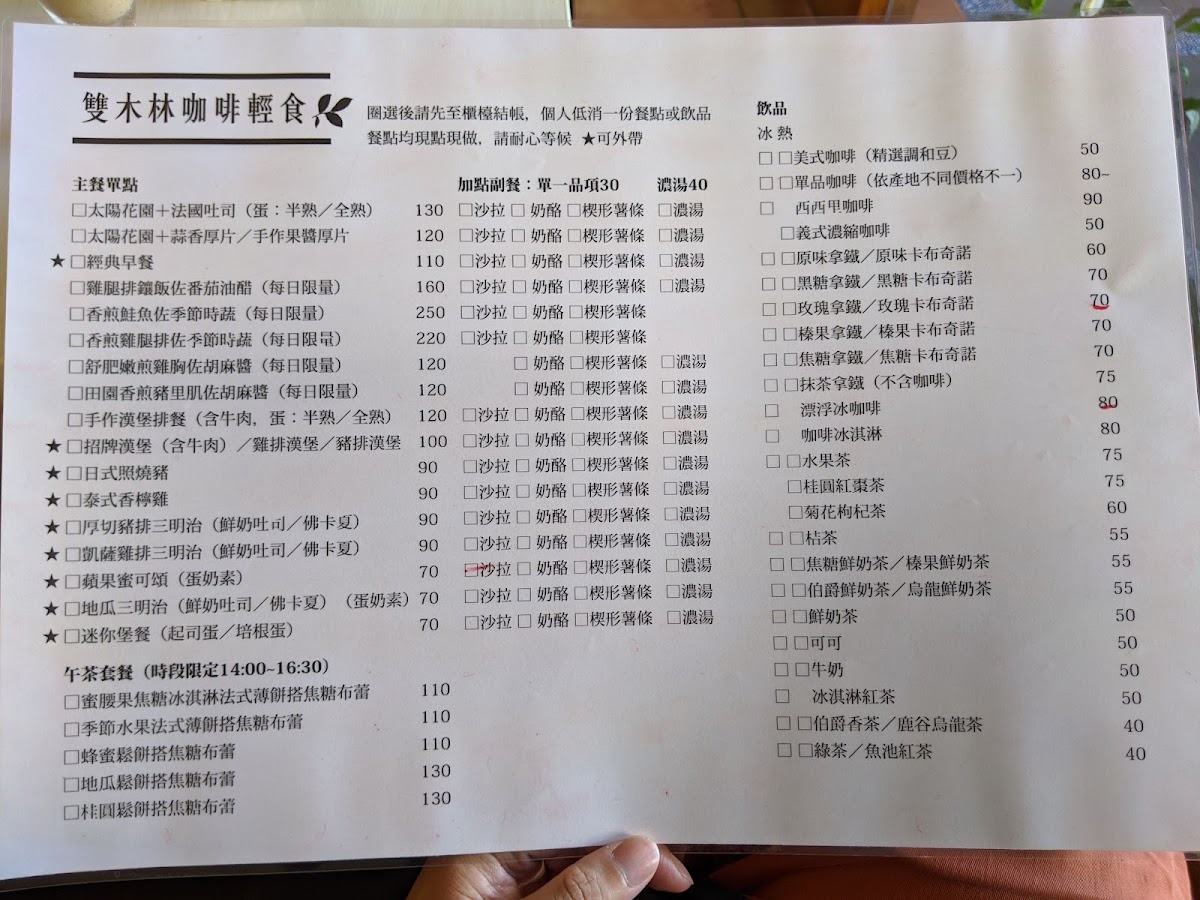 雙木林咖啡輕食
圈選後請先至櫃檯結帳，個人低消一份餐點或飲品
餐點均現點現做，請耐心等候 ★可外帶
主餐單點 加點副餐：單一品項30 濃湯40
□太陽花園＋法國吐司（蛋：半熟／全熟） 130 □沙拉 □ 奶酪 □楔形薯條 □濃湯
□太陽花園＋蒜香厚片／手作果醬厚片 120 □沙拉 □ 奶酪 □楔形薯條 □濃湯
★ □經典早餐 110 □沙拉 □ 奶酪 □楔形薯條 □濃湯
□雞腿排鑲飯佐番茄油醋（每日限量） 160 □沙拉 □ 奶酪 □楔形薯條 □濃湯
□香煎鮭魚佐季節時蔬（每日限量） 250 □沙拉 □ 奶酪 □楔形薯條
□香煎雞腿排佐季節時蔬（每日限量） 220 □沙拉 □ 奶酪 □楔形薯條
□舒肥嫩煎雞胸佐胡麻醬（每日限量） 120 □ 奶酪 □楔形薯條 □濃湯
□田園香煎豬里肌佐胡麻醬（每日限量） 120 □ 奶酪 □楔形薯條 □濃湯
□手作漢堡排餐（含牛肉，蛋：半熟／全熟） 120 □沙拉 □ 奶酪 □楔形薯條 □濃湯
★ □招牌漢堡（含牛肉）／雞排漢堡／豬排漢堡 100 □沙拉 □ 奶酪 □楔形薯條 □濃湯
★ □日式照燒豬 90 □沙拉 □ 奶酪 □楔形薯條 □濃湯
★ □泰式香檸雞 90 □沙拉 □ 奶酪 □楔形薯條 □濃湯
★ □厚切豬排三明治（鮮奶吐司／佛卡夏） 90 □沙拉 □ 奶酪 □楔形薯條 □濃湯
★ □凱薩雞排三明治（鮮奶吐司／佛卡夏） 90 □沙拉 □ 奶酪 □楔形薯條 □濃湯
★ □蘋果蜜可頌（蛋奶素） 70 □沙拉 □ 奶酪 □楔形薯條 □濃湯
★ □地瓜三明治（鮮奶吐司／佛卡夏）（蛋奶素） 70 □沙拉 □ 奶酪 □楔形薯條 □濃湯
★ □迷你堡餐（起司蛋／培根蛋） 70 □沙拉 □ 奶酪 □楔形薯條 □濃湯
午茶套餐（時段限定14:00~16:30）
□蜜腰果焦糖冰淇淋法式薄餅搭焦糖布蕾 110
□季節水果法式薄餅搭焦糖布蕾 110
□蜂蜜鬆餅搭焦糖布蕾 110
□地瓜鬆餅搭焦糖布蕾 130
□桂圓鬆餅搭焦糖布蕾 130
飲品
冰 熱
□ □美式咖啡（精選調和豆） 50
□ □單品咖啡（依產地不同價格不一） 80~
□ 西西里咖啡 90
□義式濃縮咖啡 50
□ □原味拿鐵／原味卡布奇諾 60
□ □黑糖拿鐵／黑糖卡布奇諾 70
□ □玫瑰拿鐵／玫瑰卡布奇諾 70
□ □榛果拿鐵／榛果卡布奇諾 70
□ □焦糖拿鐵／焦糖卡布奇諾 70
□ □抹茶拿鐵（不含咖啡） 75
□ 漂浮冰咖啡 80
□ 咖啡冰淇淋 80
□ □水果茶 75
□桂圓紅棗茶 75
□菊花枸杞茶 60
□ □桔茶 55
□ □焦糖鮮奶茶／榛果鮮奶茶 55
□ □伯爵鮮奶茶／烏龍鮮奶茶 55
□ □鮮奶茶 50
□ □可可 50
□ □牛奶 50
□ 冰淇淋紅茶 50
□ □伯爵香茶／鹿谷烏龍茶 40
□ □綠茶／魚池紅茶 40